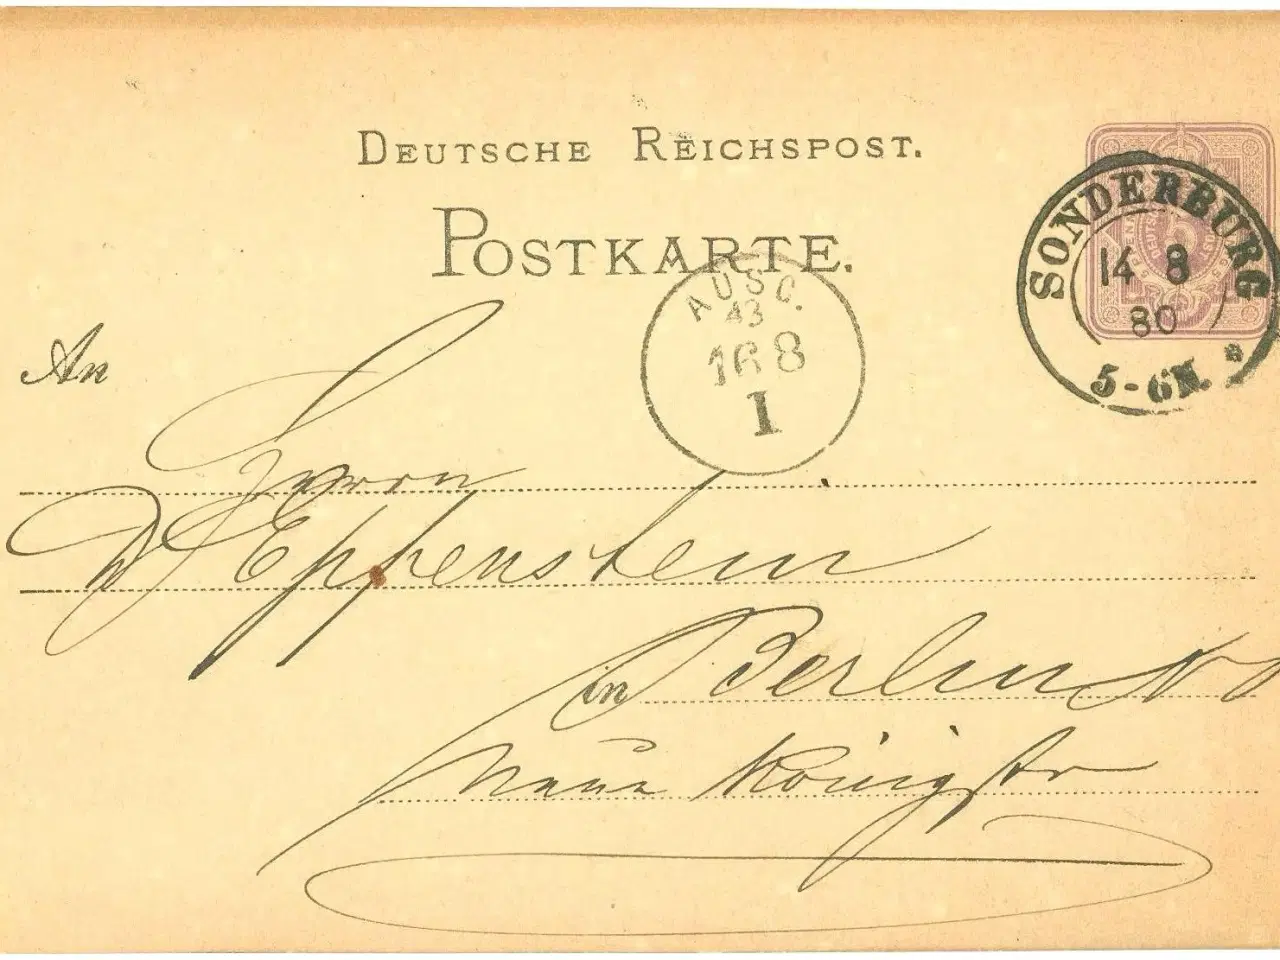 DEUTSCHE REICHSPOST.
POSTKARTE.
SONDERBURG
14 8
80
5-6N.
AUSG.
43
16 8
I
An
Herrn
Eppenstein
in Berlin
Neue Königstr